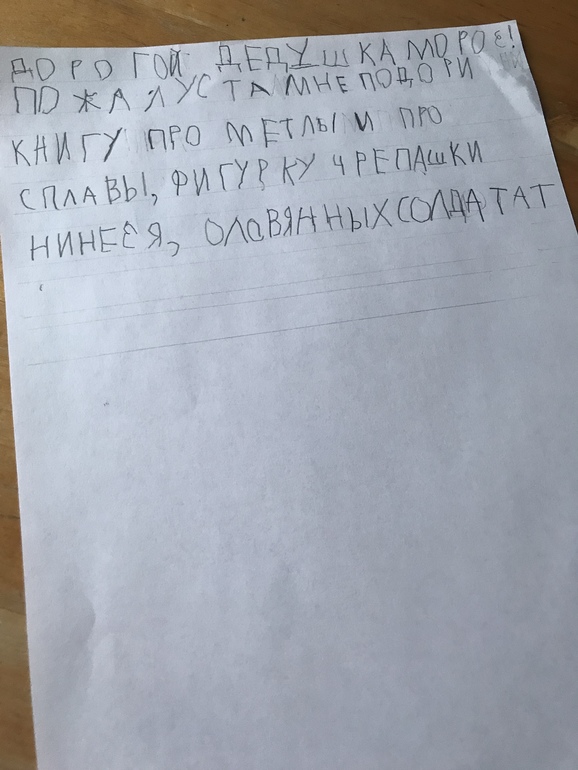 ДОРОГОЙ ДЕДУШКА МОРОЗ!
ПОЖАЛУСТА МНЕ ПОДОРИ
КНИГУ ПРО МЕТЛЫ И ПРО
СПЛАВЫ, ФИГУРКУ ЧРЕПАШКИ
НИНЕЗЯ, ОЛОВЯННЫХ СОЛДАТАТ